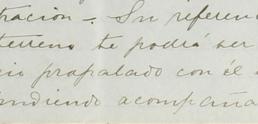 tración. Su referen
terreno te podrá ser
cio propalado con él
endiendo acompaña